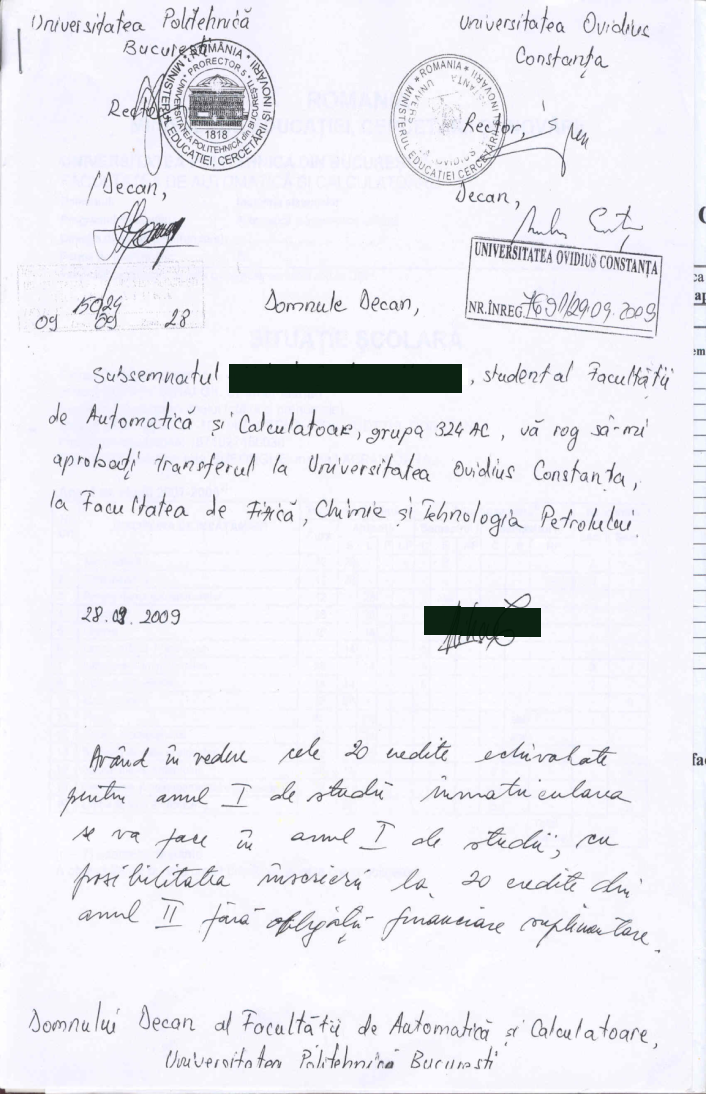 Universitatea Politehnică
București
Rector,
Decan,
MINISTERUL EDUCAȚIEI, CERCETĂRII ȘI INOVĂRII * ROMÂNIA *
UNIVERSITATEA POLITEHNICA din BUCUREȘTI * PRORECTOR 5
1818
Universitatea Ovidius
Constanța
Rector,
Decan,
* ROMANIA *
MINISTERUL EDUCAȚIEI CERCETĂRII INOVĂRII
UNIVERSITATEA OVIDIUS CONSTANȚA
NR. ÎNREG. 7691/29.09.2009
15024
09 09 28
Domnule Decan,
Subsemnatul , student al Facultății
de Automatică și Calculatoare, grupa 324 AC, vă rog să-mi
aprobați transferul la Universitatea Ovidius Constanța,
la Facultatea de Fizică, Chimie și Tehnologia Petrolului.
28.09.2009
Având în vedere cele 20 credite echivalate
pentru anul I de studii înmatricularea
se va face în anul I de studii, cu
posibilitatea înscrierii la 20 credite din
anul II fără obligații financiare suplimentare.
Domnului Decan al Facultății de Automatică și Calculatoare,
Universitatea Politehnică București